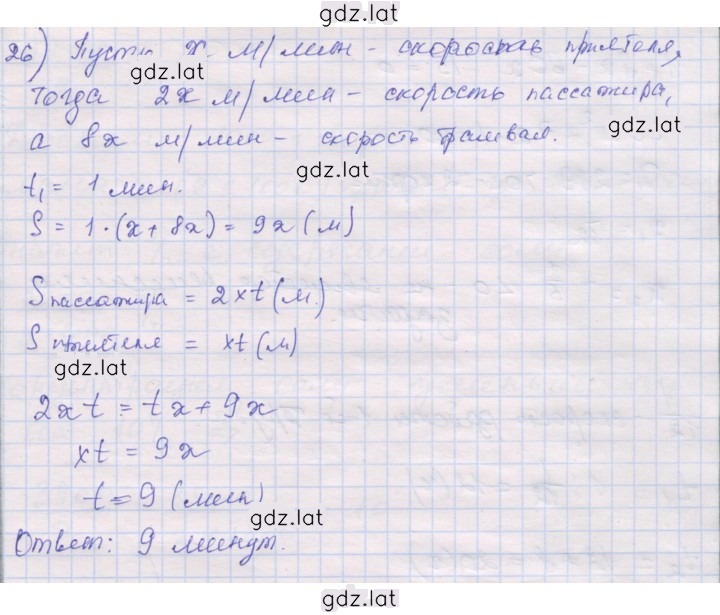 gdz.lat
26) Пусть x м/мин - скорость приятеля,
gdz.lat
тогда 2x м/мин - скорость пассажира,
gdz.lat
а 8x м/мин - скорость трамвая.
gdz.lat
t₁ = 1 мин.
S = 1·(x + 8x) = 9x (м)
S пассажира = 2xt (м.)
S приятеля = xt (м)
gdz.lat
2xt = tx + 9x
xt = 9x
t = 9 (мин)
gdz.lat
Ответ: 9 минут.
gdz.lat